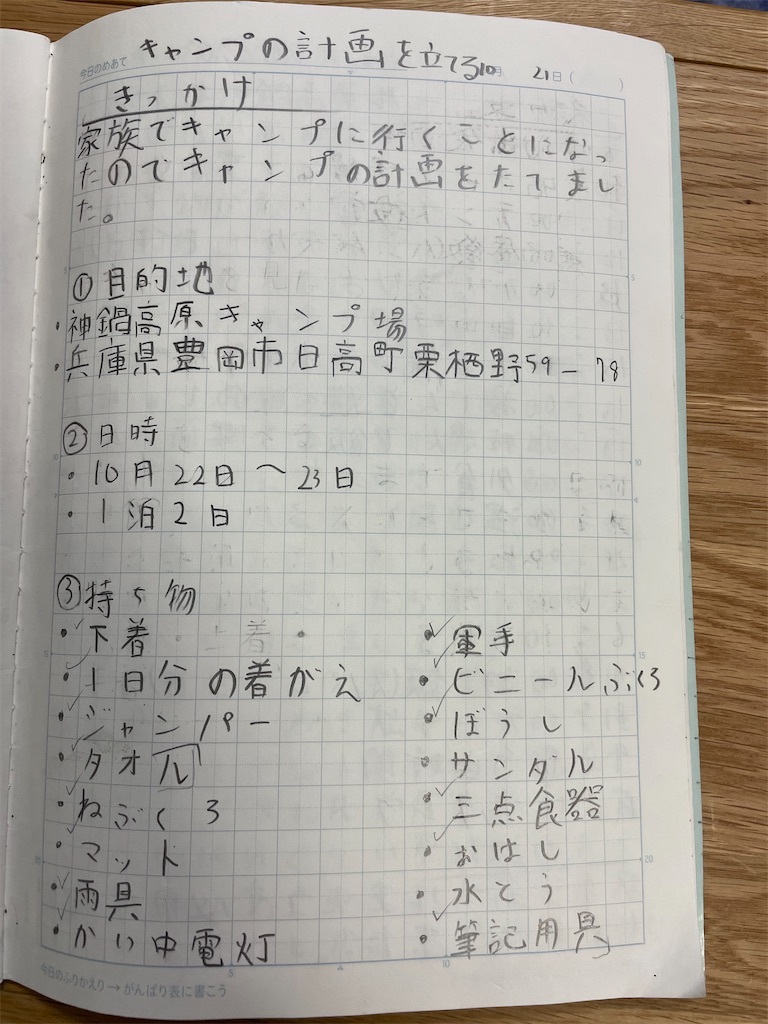 今日のめあて キャンプの計画を立てる 10月 21日( )
きっかけ
家族でキャンプに行くことになっ
たのでキャンプの計画をたてまし
た。
①目的地
・神鍋高原キャンプ場
・兵庫県豊岡市日高町栗栖野59-78
②日時
・10月22日〜23日
・1泊2日
③持ち物
・下着
・1日分の着がえ
・ジャンパー
・タオル
・ねぶくろ
・マット
・雨具
・かい中電灯
・軍手
・ビニールぶくろ
・ぼうし
・サンダル
・三点食器
・おはし
・水とう
・筆記用具
今日のふりかえり→がんばり表に書こう